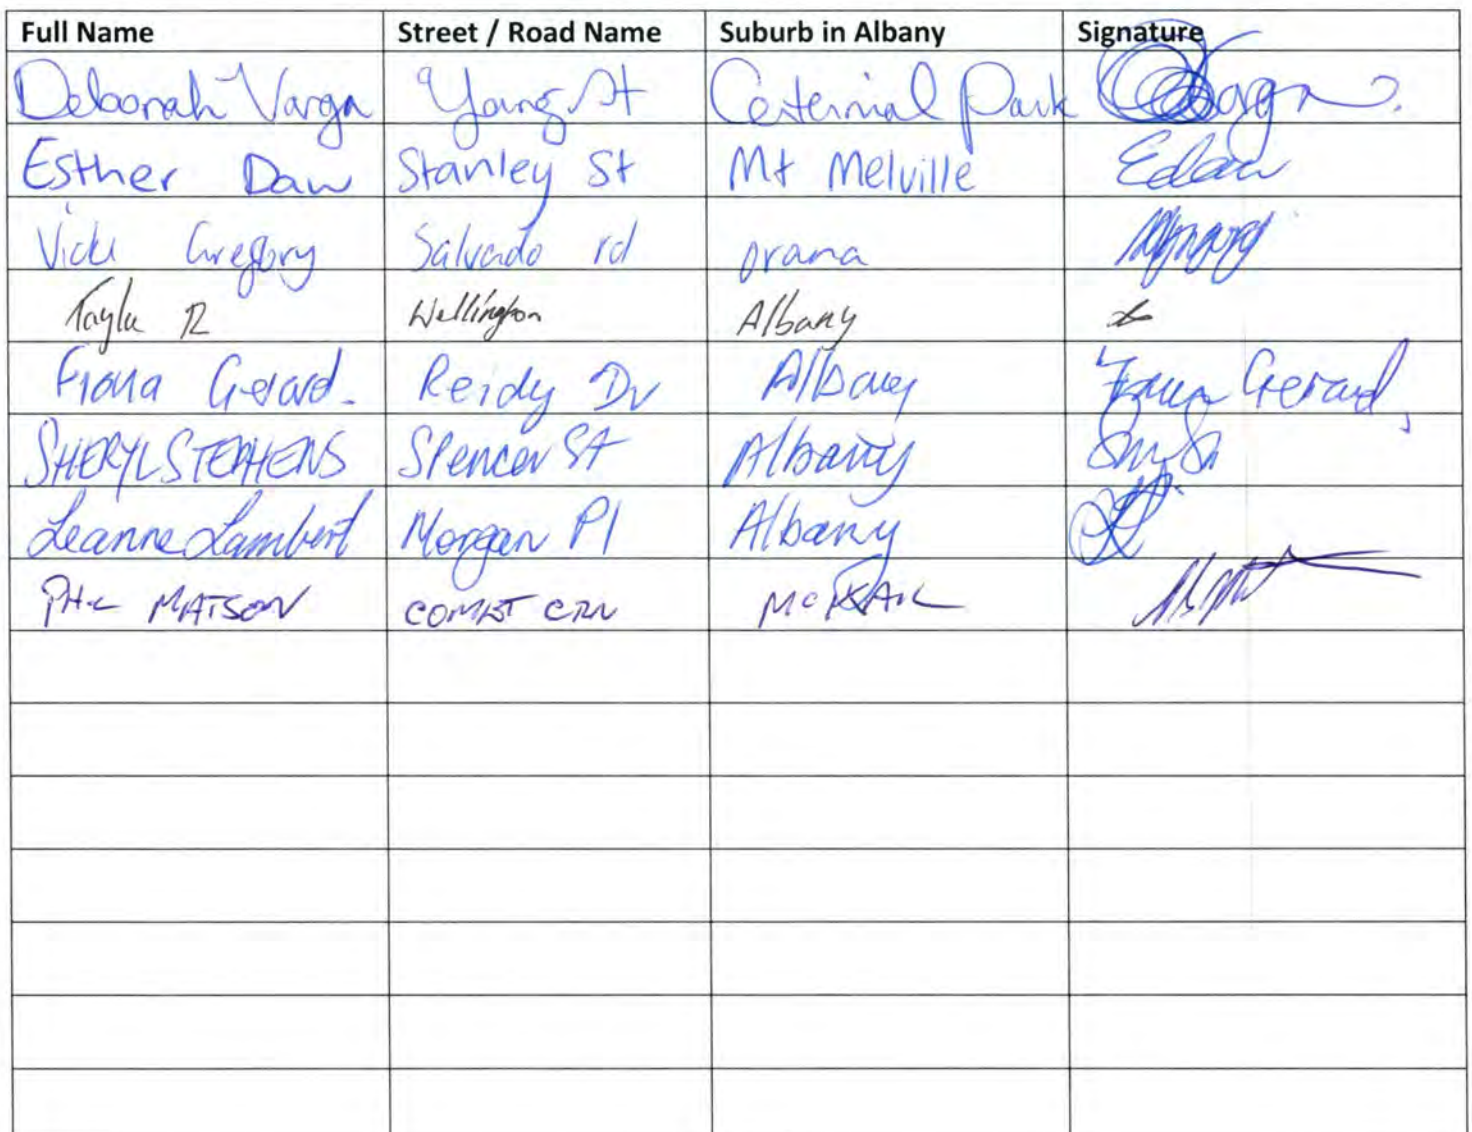 Full Name Street / Road Name Suburb in Albany Signature
Deboorah Varga Young St Centernial Park
Esther Daw Stanley St Mt Melville EDaw
Vicki Gregory Salvado rd orana
Tayla R Wellington Albany
Fiona Gerard. Reidy Dv Albany Fiona Gerard,
SHERYL STEPHENS Spencer St Albany
Leanne Lambert Morgan Pl Albany
PHIL MATSON COMET CRN MCKAIL